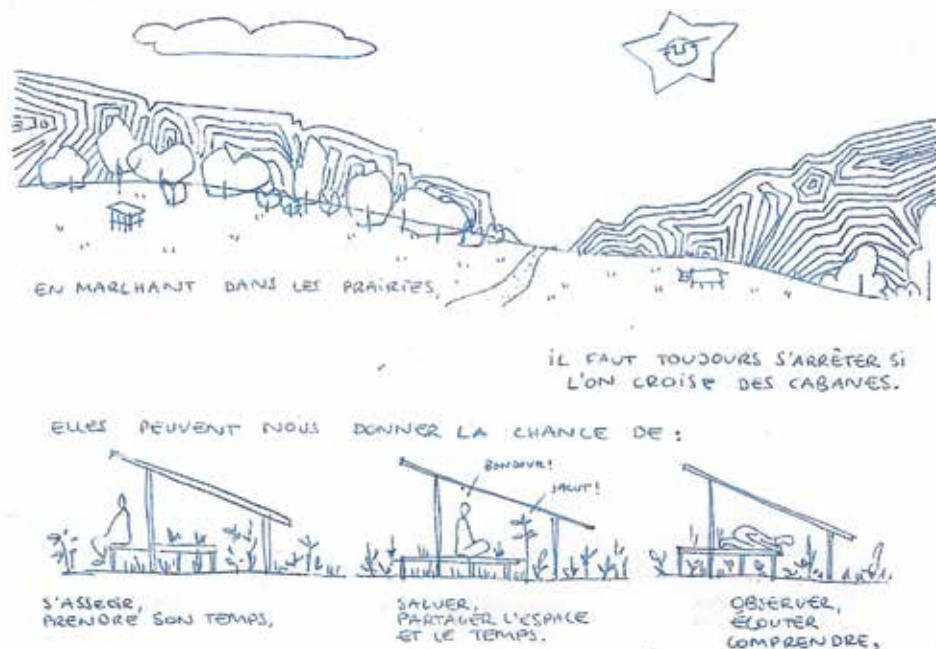 EN MARCHANT DANS LES PRAIRIES,
IL FAUT TOUJOURS S'ARRÊTER SI
L'ON CROISE DES CABANES.
ELLES PEUVENT NOUS DONNER LA CHANCE DE :
BONJOUR!
SALUT!
S'ASSEOIR,
PRENDRE SON TEMPS,
SALUER,
PARTAGER L'ESPACE
ET LE TEMPS.
OBSERVER,
ÉCOUTER
COMPRENDRE,